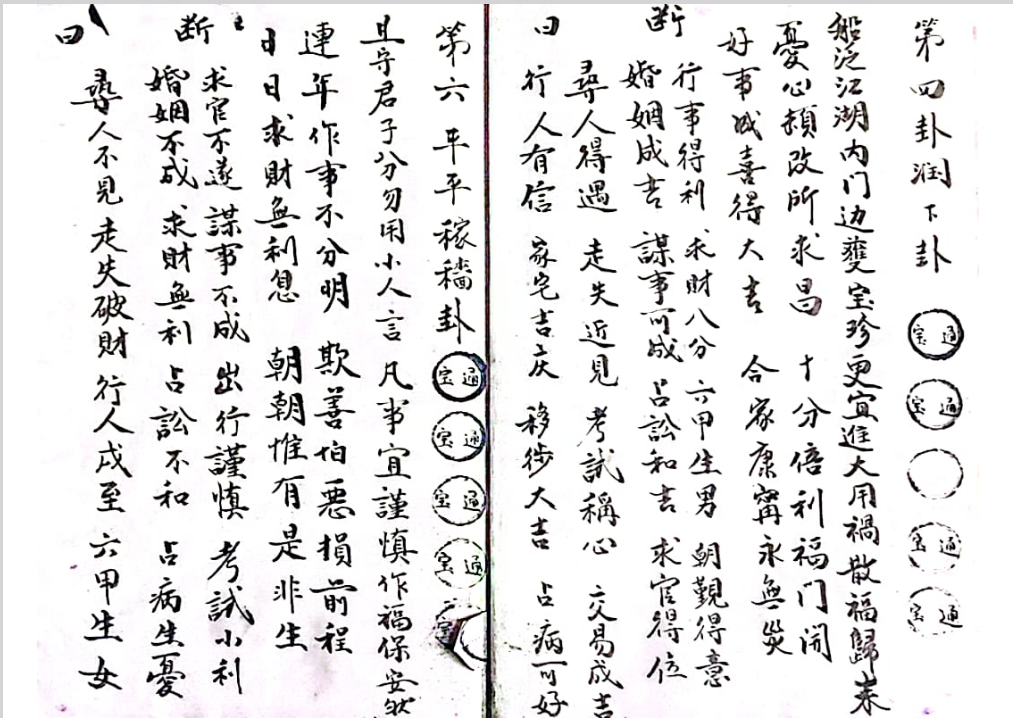 第四卦润下卦
宝通
宝通
宝通
宝通
船泛江湖内门边璧宝珍更宜進大用禍散福歸来
憂心頻改所求昌 十分倍利福門開
好事成喜得大吉 合家康寧永無災
断曰
行事得利 求財八分 六甲生男 朝覲得意
婚姻成吉 謀事可成 占訟和吉 求官得位
尋人得遇 走失近見 考試稱心 交易成吉
行人有信 家宅吉庆 移徙大吉 占病可好
第六 平平稼穡卦
宝通
宝通
宝通
宝通
宝
且守君子分勿用小人言 凡事宜謹慎作福保安然
連年作事不分明 欺善怕惡損前程
日日求財無利息 朝朝惟有是非生
断曰
求官不遂 謀事不成 出行謹慎 考試小利
婚姻不成 求財無利 占訟不和 占病生憂
尋人不見 走失破財 行人戍至 六甲生女